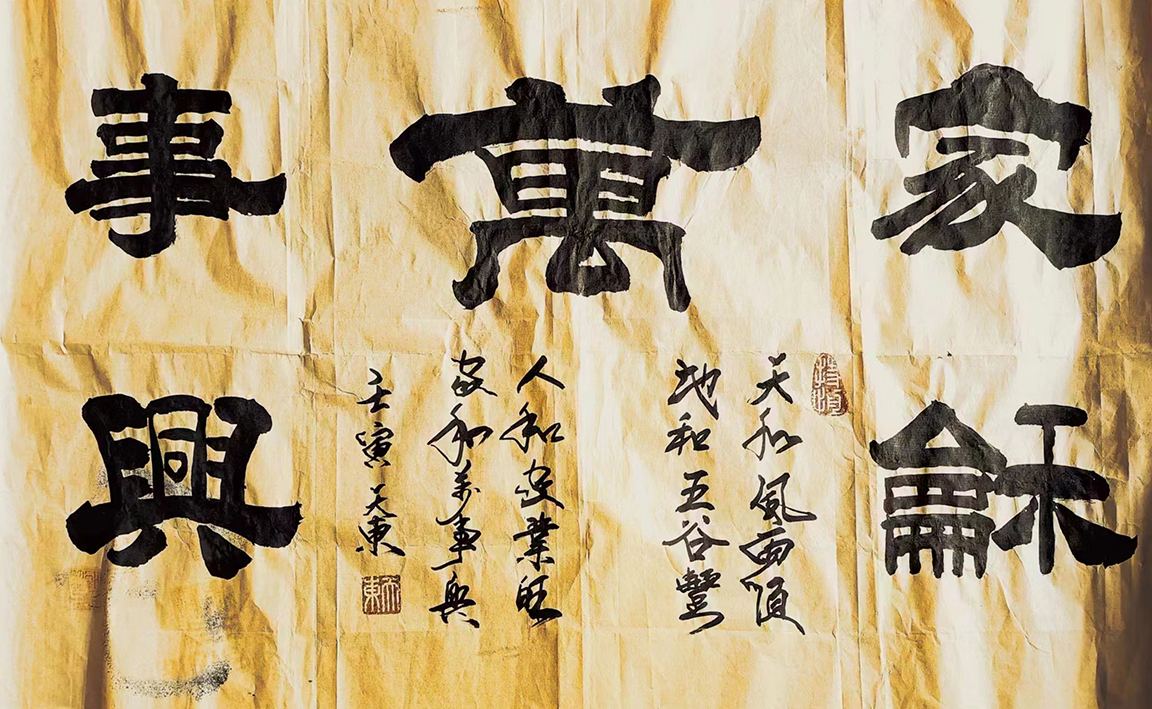 家龢
萬
事興
天和風雨順
地和五谷豐
人和家業旺
家和萬事興
壬寅天東
天東